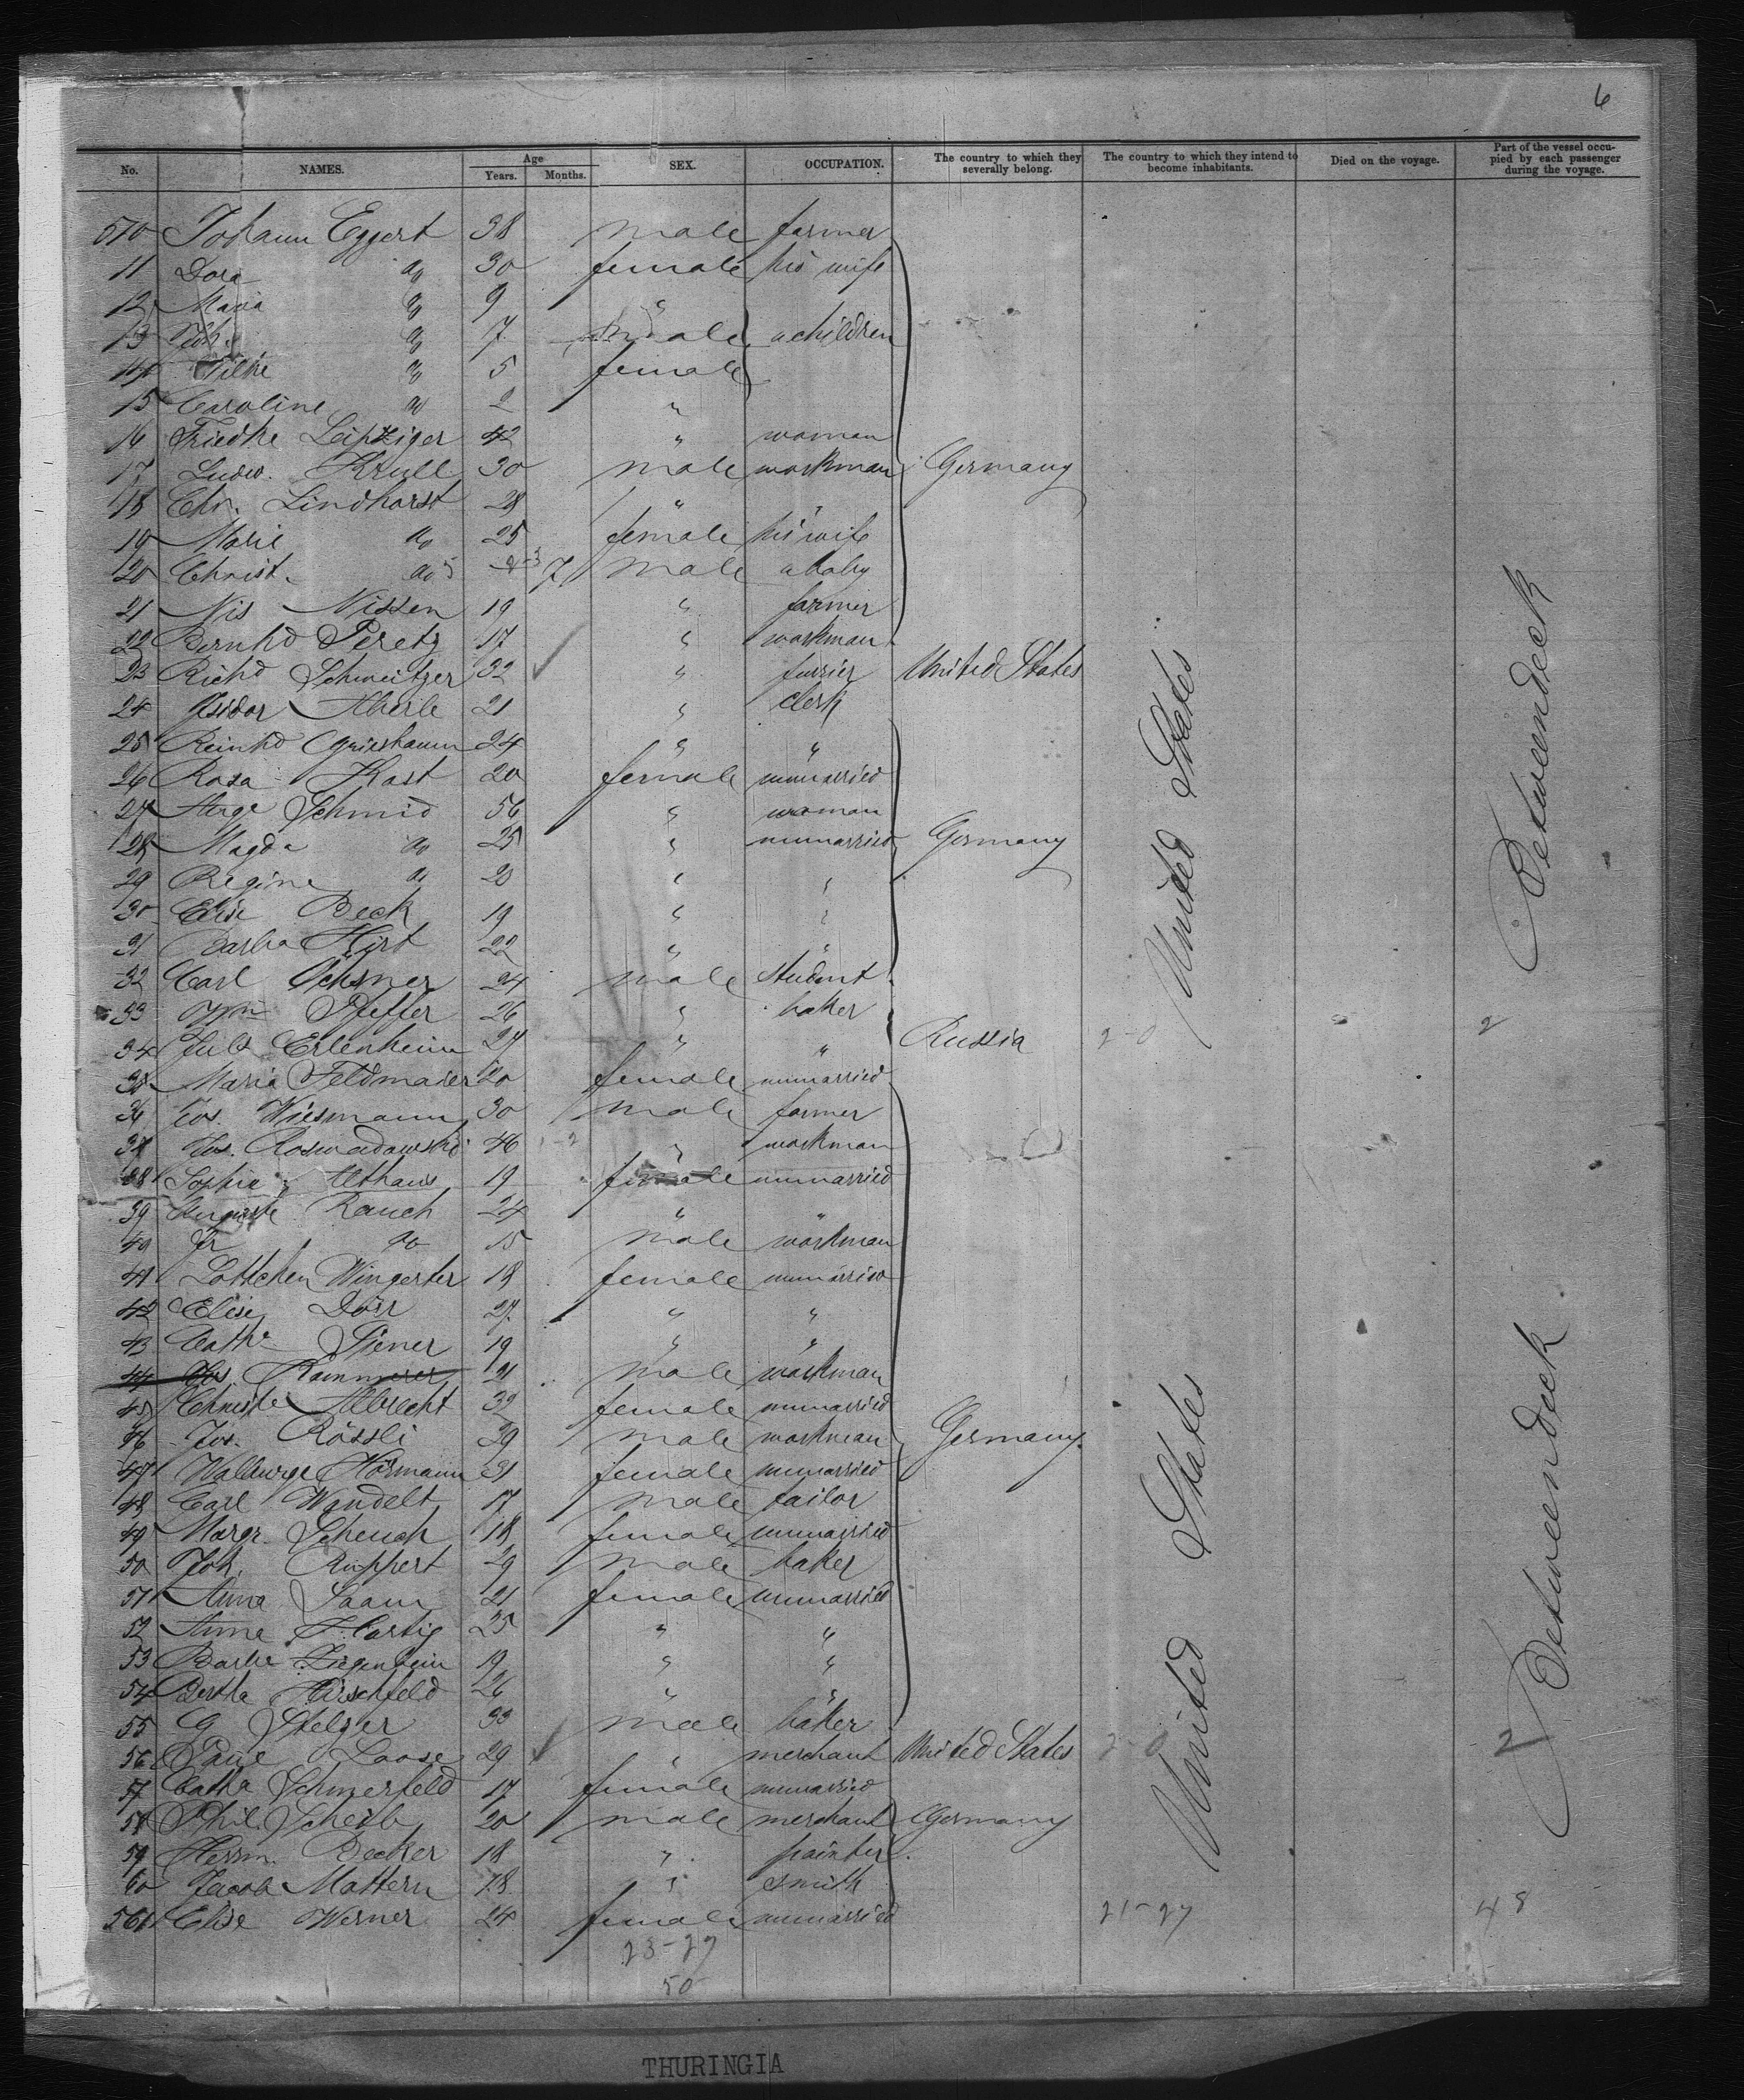 6
No. NAMES. Age Years. Months. SEX. OCCUPATION. The country to which they severally belong. The country to which they intend to become inhabitants. Died on the voyage. Part of the vessel occupied by each passenger during the voyage.
510 Johann Eggert 38 male farmer
11 Dora do 30 female his wife
12 Maria do 9 "
13 Joh. do 7 male a children
14 do 5 female
15 Caroline do 2 "
16 Friedke Leipziger 42 " woman
17 Ludw. Krull 30 male workman Germany
18 Chr. Lindhorst 28 " "
19 Marie do 25 female his wife
20 Christ. do 7 male a baby
21 Nis Nissen 19 " farmer
22 Bernhd Peretz 17 " workman
23 Richd Schweitzer 32 " furrier United States
24 Isidor Aberle 21 " clerk
25 Reinhd Grieshaum 24 " "
26 Rosa Kast 20 female unmarried
27 Schmid 56 " woman
28 Magda do 25 " unmarried Germany
29 Regine do 20 " "
30 Elise Beck 19 " "
31 Barba Hirt 22 " "
32 Carl Ochsner 24 male student
33 Wm Pfeffer 26 " baker
34 Juls Erlenheim 27 " " Russia 2-0 2
35 Maria Feldmaier 20 female unmarried
36 Jos. Wiesmann 30 male farmer
37 Jos. Roswadowski 46 " workman
38 Sophie Althaus 19 female unmarried
39 Auguste Rauch 24 " "
40 Fr do 15 male workman
41 Lottchen Wingerter 18 female unmarried
42 Elise Dörr 27 " "
43 Cathe Siener 19 " "
44 Jos. Kammerer 21 male workman
45 Christe Albrecht 32 female unmarried
46 Jos. Rössli 39 male workman Germany
47 Walburge Hörmann 31 female unmarried
48 Carl Wandelt 17 male tailor
49 Margr. Schench 18 female unmarried
50 Joh. Ruppert 29 male baker
51 Anna Saam 21 female unmarried
52 Anna Hartig 25 " "
53 Barba Ziegenhein 19 " "
54 Bertha Hirschfeld 26 " "
55 G Stelzer 33 male baker
56 Loose 29 " merchant United States 2-0 2
57 Catha Schmerfeld 17 female unmarried
58 Phil. Scheib 20 male merchant Germany
59 Herm. Becker 18 " painter
60 Jacob Mattern 18 " smith
561 Elise Werner 24 female unmarried 21-27 48
United States
Betweendeck
United States
Betweendeck
23-27
50
THURINGIA